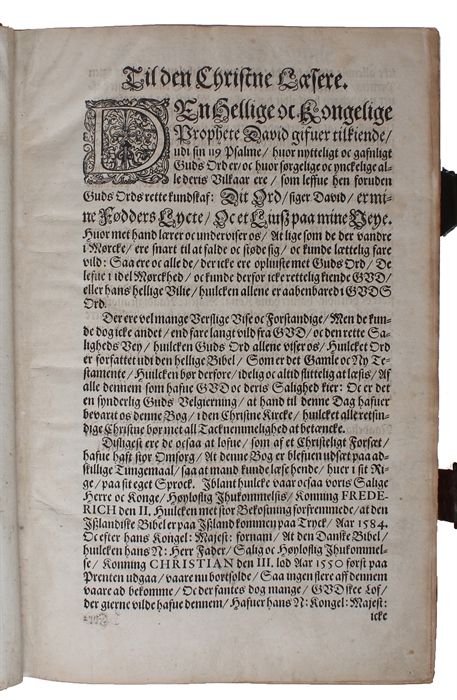 Til den Christne Læsere.
DEn Hellige oc Kongelige
Prophete David gifuer tilkiende/
udi sin 119 Psalme/ huor nytteligt oc gafnligt
Guds Ord er/ oc huor sørgelige oc ynckelige al-
le deris Vilkaar ere/ som leffue hen foruden
Guds Ords rette kundskaf: Dit Ord/ siger David/ er mi-
ne Fødders Lycte/ Oc et Liuß paa mine Veye.
Huor met hand lærer oc underviser os/ At lige som de der vandre
i Mørcke/ ere snart til at falde oc støde sig/ oc kunde lættelig fare
vild: Saa ere oc alle de/ der icke ere opliuste met Guds Ord/ De
lefue i idel Mørckhed/ oc kunde derfor icke rettelig kiende GVD/
eller hans hellige Vilie/ huilcken allene er aabenbared i GVDS
Ord.
Der ere vel mange Verslige Vise oc Forstandige/ Men de kun-
de dog icke andet/ end fare langt vild fra GVD/ oc den rette Sa-
ligheds Vey/ huilcken Guds Ord allene viser os/ Huilcket Ord
er forfattet udi den hellige Bibel/ Som er det Gamle oc Ny Te-
stamente/ Huilcken bør derfore/ idelig oc altid flittelig at læsis/ Af
alle dennem som hafue GVD oc deris Salighed kier: Oc er det
en synderlig Guds Velgierning/ at hand til denne Dag hafuer
bevarit os denne Bog/ i den Christne Kircke/ huilcket alle retsin-
dige Christne bør met all Tacknemmelighed at betæncke.
Disligest ere de ocsaa at lofue/ som af et Christeligt Forsæt/
hafue hafft stor Omsorg/ At denne Bog er blefuen udsæt paa ad-
skillige Tungemaal/ saa at mand kunde læse hende/ huer i sit Ri-
ge/ paa sit eget Sprock. Iblant huilcke vaar ocsaa voris Salige
Herre oc Konge/ Høylofflig Ihukommelsis/ Konning FREDE-
RICH den II. Huilcken met stor Bekostning forfremmede/ at den
Ißlandiske Bibel er paa Ißland kommen paa Tryck/ Aar 1584.
Oc efter hans Kongel: Majest: fornam/ At den Danske Bibel/
huilcken hans N: Herr Fader/ Salig oc Høylofflig Ihukommel-
se/ Konning CHRISTIAN den III. lod Aar 1550 først paa
Prenten udgaa/ vaare nu bortsolde/ Saa ingen flere aff dennem
vaare ad bekomme/ Oc der fantes dog mange/ GVD skee Lof/
der gierne vilde hafue dennem/ Hafuer hans N: Kongel: Majest:
icke